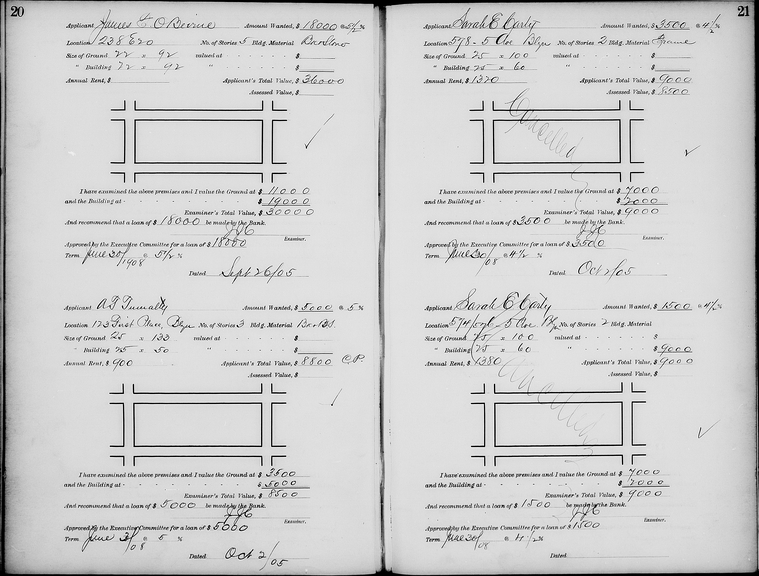 20
Applicant James F. O'Beirne Amount Wanted, $ 18000 @ 5 1/2 %
Location 238 E 20 No. of Stories 5 Bldg. Material
Size of Ground 22 x 92 valued at $
" Building 22 x 92 " $
Annual Rent, $ Applicant's Total Value, $ 36000
Assessed Value, $
I have examined the above premises and I value the Ground at $ 11000
and the Building at $ 19000
Examiner's Total Value, $ 30000
And recommend that a loan of $ 18000 be made by the Bank.
Examiner.
Approved by the Executive Committee for a loan of $ 18000
Term June 30/1908 @ 5 1/2 %
Dated Sept 26/05
Applicant Amount Wanted, $ 5000 @ 5 %
Location 123 First Place, Blyn No. of Stories 3 Bldg. Material
Size of Ground 25 x 133 valued at $
" Building 25 x 50 " $
Annual Rent, $ 900 Applicant's Total Value, $ 8800
Assessed Value, $
I have examined the above premises and I value the Ground at $ 3500
and the Building at $ 5000
Examiner's Total Value, $ 8500
And recommend that a loan of $ 5000 be made by the Bank.
Examiner.
Approved by the Executive Committee for a loan of $ 5000
Term June 30/08 @ 5 %
Dated Oct 2/05
21
Applicant Sarah E Carty Amount Wanted, $ 3500 @ 4 1/2 %
Location 578 - 5 Ave Blyn No. of Stories 2 Bldg. Material Frame
Size of Ground 25 x 100 valued at $
" Building 25 x 60 " $
Annual Rent, $ 1320 Applicant's Total Value, $ 9000
Assessed Value, $ 8500
Cancelled
I have examined the above premises and I value the Ground at $ 7000
and the Building at $ 2000
Examiner's Total Value, $ 9000
And recommend that a loan of $ 3500 be made by the Bank.
Examiner.
Approved by the Executive Committee for a loan of $ 3500
Term June 30/08 @ 4 1/2 %
Dated Oct 2/05
Applicant Sarah E Carty Amount Wanted, $ 1500 @ 4 1/2 %
Location 5 Ave No. of Stories 2 Bldg. Material
Size of Ground 25 x 100 valued at $
" Building 25 x 60 " $ 9000
Annual Rent, $ 1380 Applicant's Total Value, $ 9000
Assessed Value, $
Cancelled
I have examined the above premises and I value the Ground at $ 7000
and the Building at $ 2000
Examiner's Total Value, $ 9000
And recommend that a loan of $ 1500 be made by the Bank.
Examiner.
Approved by the Executive Committee for a loan of $ 1500
Term June 30/08 @ 4 1/2 %
Dated